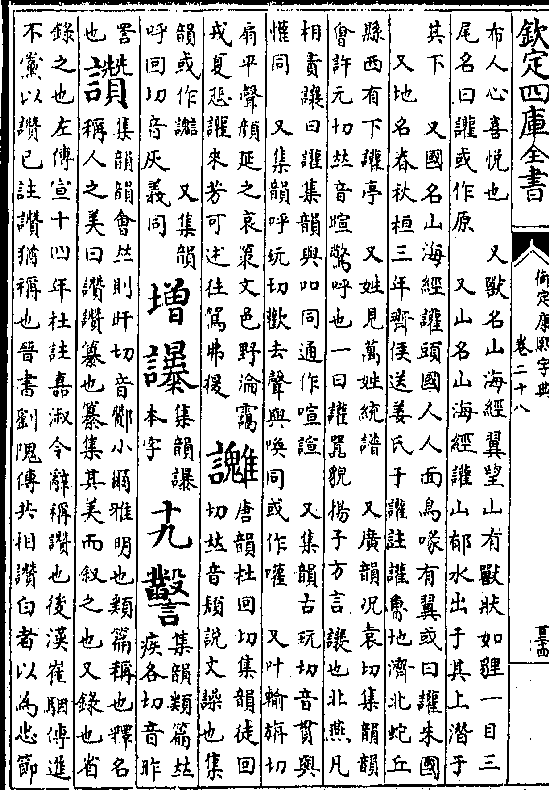 欽定四庫全書
御定康熙字典
卷二十八
布人心喜悅也　又獸名山海經翼望山有獸狀如貍一目三
尾名曰讙或作原　又山名山海經讙山郁水出于其上潛于
其下　又國名山海經讙頭國人人面鳥喙有翼或曰讙朱國
又地名春秋桓三年齊侯送姜氏于讙註讙魯地濟北蛇丘
縣西有下讙亭　又姓見萬姓統譜　又廣韻况袁切集韻韻
會許元切𠀤音暄驚呼也一曰讙嚚貌揚子方言讓也北燕凡
相責讓曰讙集韻與吅同通作喧諠　又集韻古玩切音貫與
懽同　又集韻呼玩切歡去聲與喚同或作嚾　又叶輸旃切
扇平聲顔延之哀策文邑野淪靄
戎夏悲讙來芳可述往駕弗援
䜅
唐韻杜回切集韻徒回
切𠀤音頹說文譟也集
韻或作　又集韻
呼回切音灰義同
增
集韻
本字
十九
集韻類篇𠀤
疾各切音昨
詈
也
讚
集韻韻會𠀤則旰切音酇小爾雅明也類篇稱也釋名
稱人之美曰讚讚纂也纂集其美而叙之也又錄也省
錄之也左傳宣十四年杜註嘉淑令辭稱讚也後漢崔駰傳進
不黨以讚己註讚猶稱也晉書劉隗傳共相讚白者以為忠節